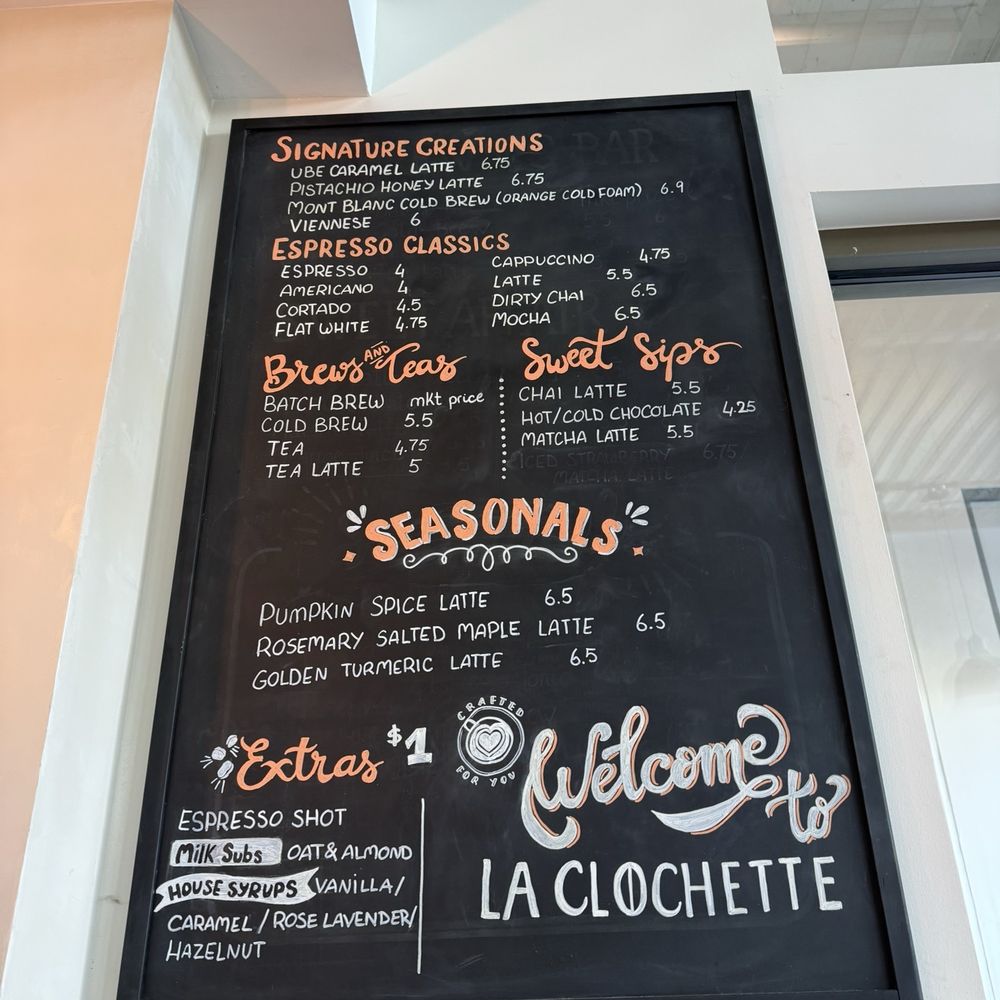 SIGNATURE CREATIONS
UBE CARAMEL LATTE 6.75
PISTACHIO HONEY LATTE 6.75
MONT BLANC COLD BREW (ORANGE COLD FOAM) 6.9
VIENNESE 6
ESPRESSO CLASSICS
ESPRESSO 4
AMERICANO 4
CORTADO 4.5
FLAT WHITE 4.75
CAPPUCCINO 4.75
LATTE 5.5
DIRTY CHAI 6.5
MOCHA 6.5
Brews AND Teas
BATCH BREW mkt price
COLD BREW 5.5
TEA 4.75
TEA LATTE 5
Sweet Sips
CHAI LATTE 5.5
HOT/COLD CHOCOLATE 4.25
MATCHA LATTE 5.5
ICED STRAWBERRY 6.75/
MATCHA LATTE
SEASONALS
PUMPKIN SPICE LATTE 6.5
ROSEMARY SALTED MAPLE LATTE 6.5
GOLDEN TURMERIC LATTE 6.5
Extras $1
ESPRESSO SHOT
Milk Subs OAT & ALMOND
HOUSE SYRUPS VANILLA/
CARAMEL / ROSE LAVENDER/
HAZELNUT
CRAFTED
FOR YOU
Welcome
to
LA CLOCHETTE